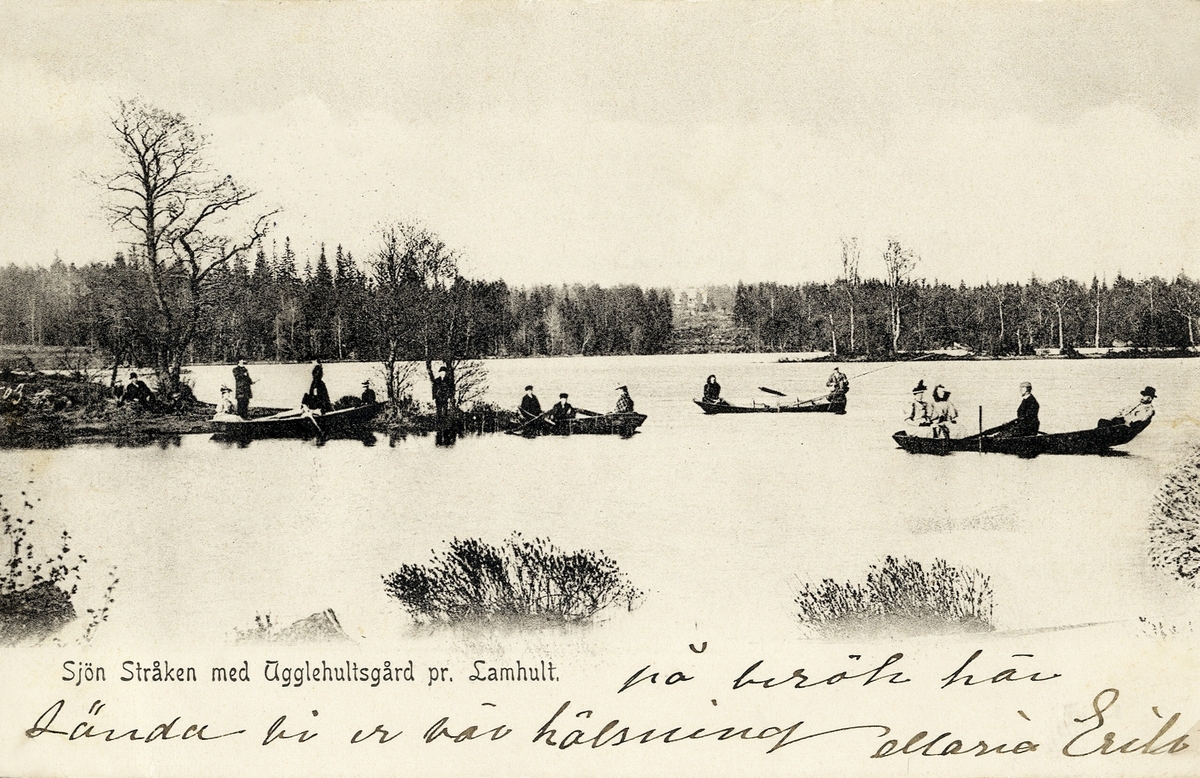 Sjön Stråken med Ugglehultsgård pr. Lamhult.
på besök här
Sända vi er vår hälsning Maria Erik